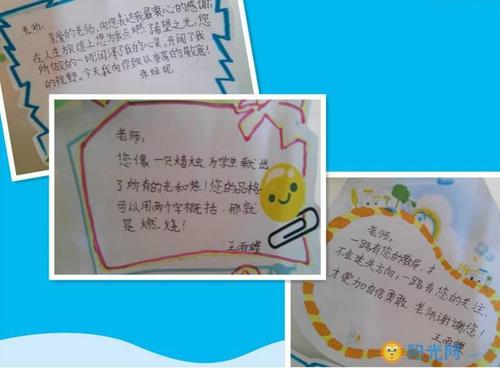 老师：
亲爱的老师，向您表达我最衷心的感谢，
在人生旅途上您为我点燃了希望之光，您
所做的一切润泽了我的心灵，开阔了我
的视野。今天我向你致以崇高的敬意！
老师：
您像一只蜡烛，为学生献出
了所有的光和热！您的品格
可以用两个字概括，那就
是燃烧！
王雨蝶
老师，
一路有您的教导，才
不会迷失方向；一路有您的关注，
才更加自信勇敢，老师谢谢您！
王雨蝶
阳光网